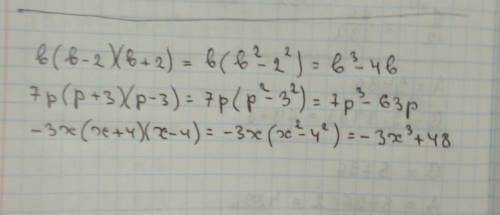 в(в-2)(в+2) = в(в²-2²) = в³-4в
7p(p+3)(p-3) = 7p(p²-3²) = 7p³-63p
-3x(x+4)(x-4) = -3x(x²-4²) = -3x³+48